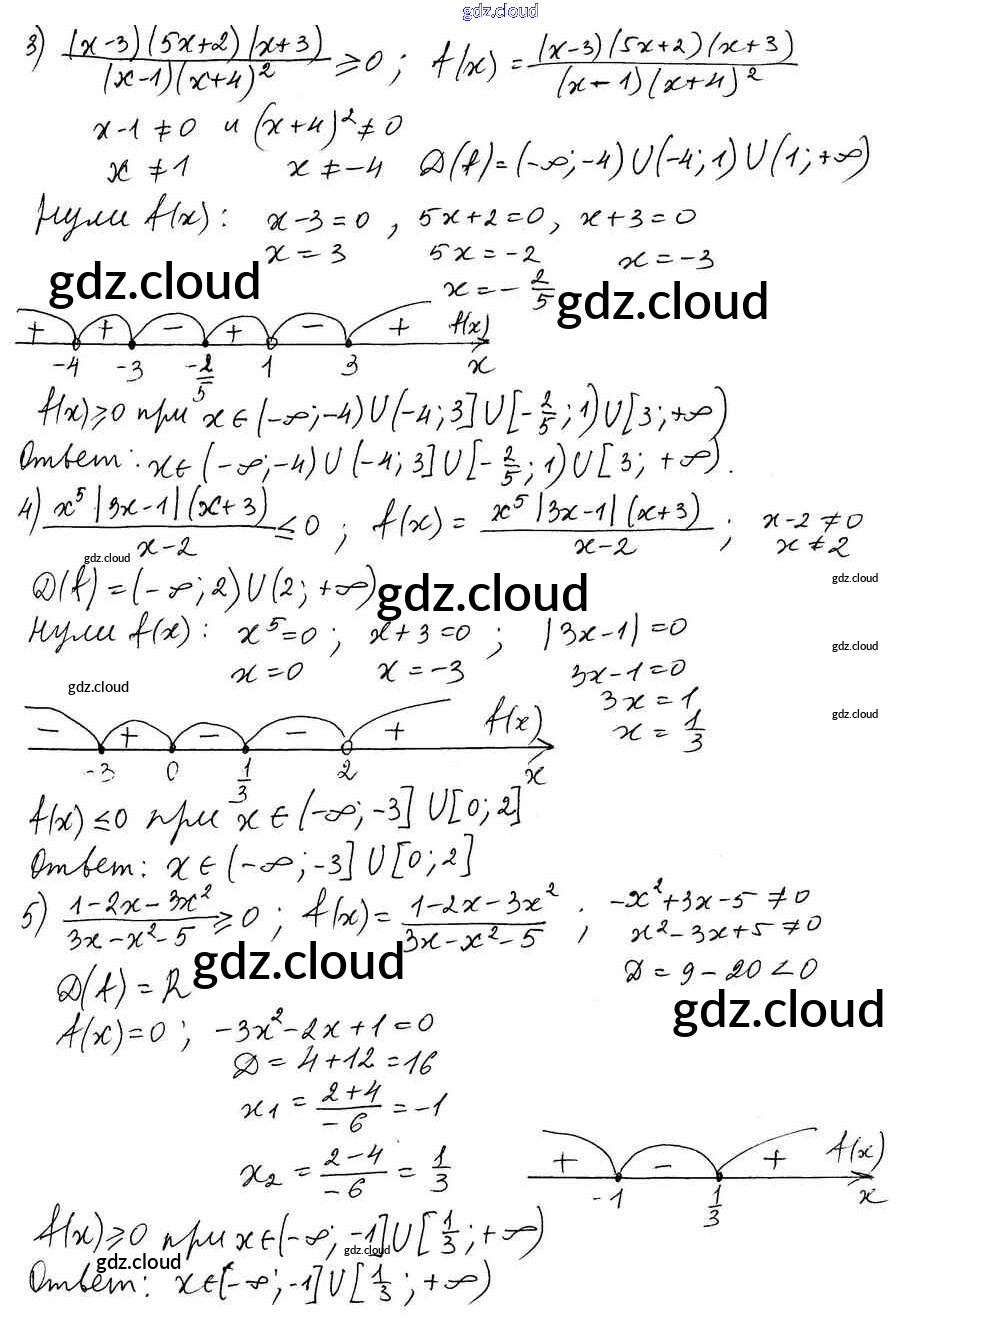 gdz.cloud
3) (x-3)(5x+2)(x+3) / (x-1)(x+4)² ≥ 0 ; f(x) = (x-3)(5x+2)(x+3) / (x-1)(x+4)²
x-1≠0 и (x+4)²≠0
x≠1 x≠-4 D(f)=(-∞;-4)∪(-4;1)∪(1;+∞)
Нули f(x): x-3=0, 5x+2=0, x+3=0
x=3 5x=-2 x=-3
gdz.cloud x=-2/5 gdz.cloud
+ + - + - + f(x)
-4 -3 -2/5 1 3 x
f(x)≥0 при x∈(-∞;-4)∪(-4;3]∪[-2/5;1)∪[3;+∞)
Ответ: x∈(-∞;-4)∪(-4;3]∪[-2/5;1)∪[3;+∞).
4) x⁵|3x-1|(x+3) / x-2 ≤ 0 ; f(x) = x⁵|3x-1|(x+3) / x-2 ; x-2≠0
x≠2
gdz.cloud
D(f)=(-∞;2)∪(2;+∞) gdz.cloud gdz.cloud
Нули f(x): x⁵=0 ; x+3=0 ; |3x-1|=0 gdz.cloud
x=0 x=-3 3x-1=0
gdz.cloud 3x=1 gdz.cloud
x=1/3
- + - - + f(x)
-3 0 1/3 2 x
f(x)≤0 при x∈(-∞;-3]∪[0;2]
Ответ: x∈(-∞;-3]∪[0;2]
5) 1-2x-3x² / 3x-x²-5 ≥ 0 ; f(x) = 1-2x-3x² / 3x-x²-5 ; -x²+3x-5≠0
x²-3x+5≠0
gdz.cloud
D(f)=R D=9-20<0
gdz.cloud
f(x)=0 ; -3x²-2x+1=0
D=4+12=16
x₁ = 2+4 / -6 = -1
x₂ = 2-4 / -6 = 1/3
+ - + f(x)
-1 1/3 x
f(x)≥0 при x∈(-∞;-1]∪[1/3;+∞)
gdz.cloud gdz.cloud
Ответ: x∈(-∞;-1]∪[1/3;+∞)